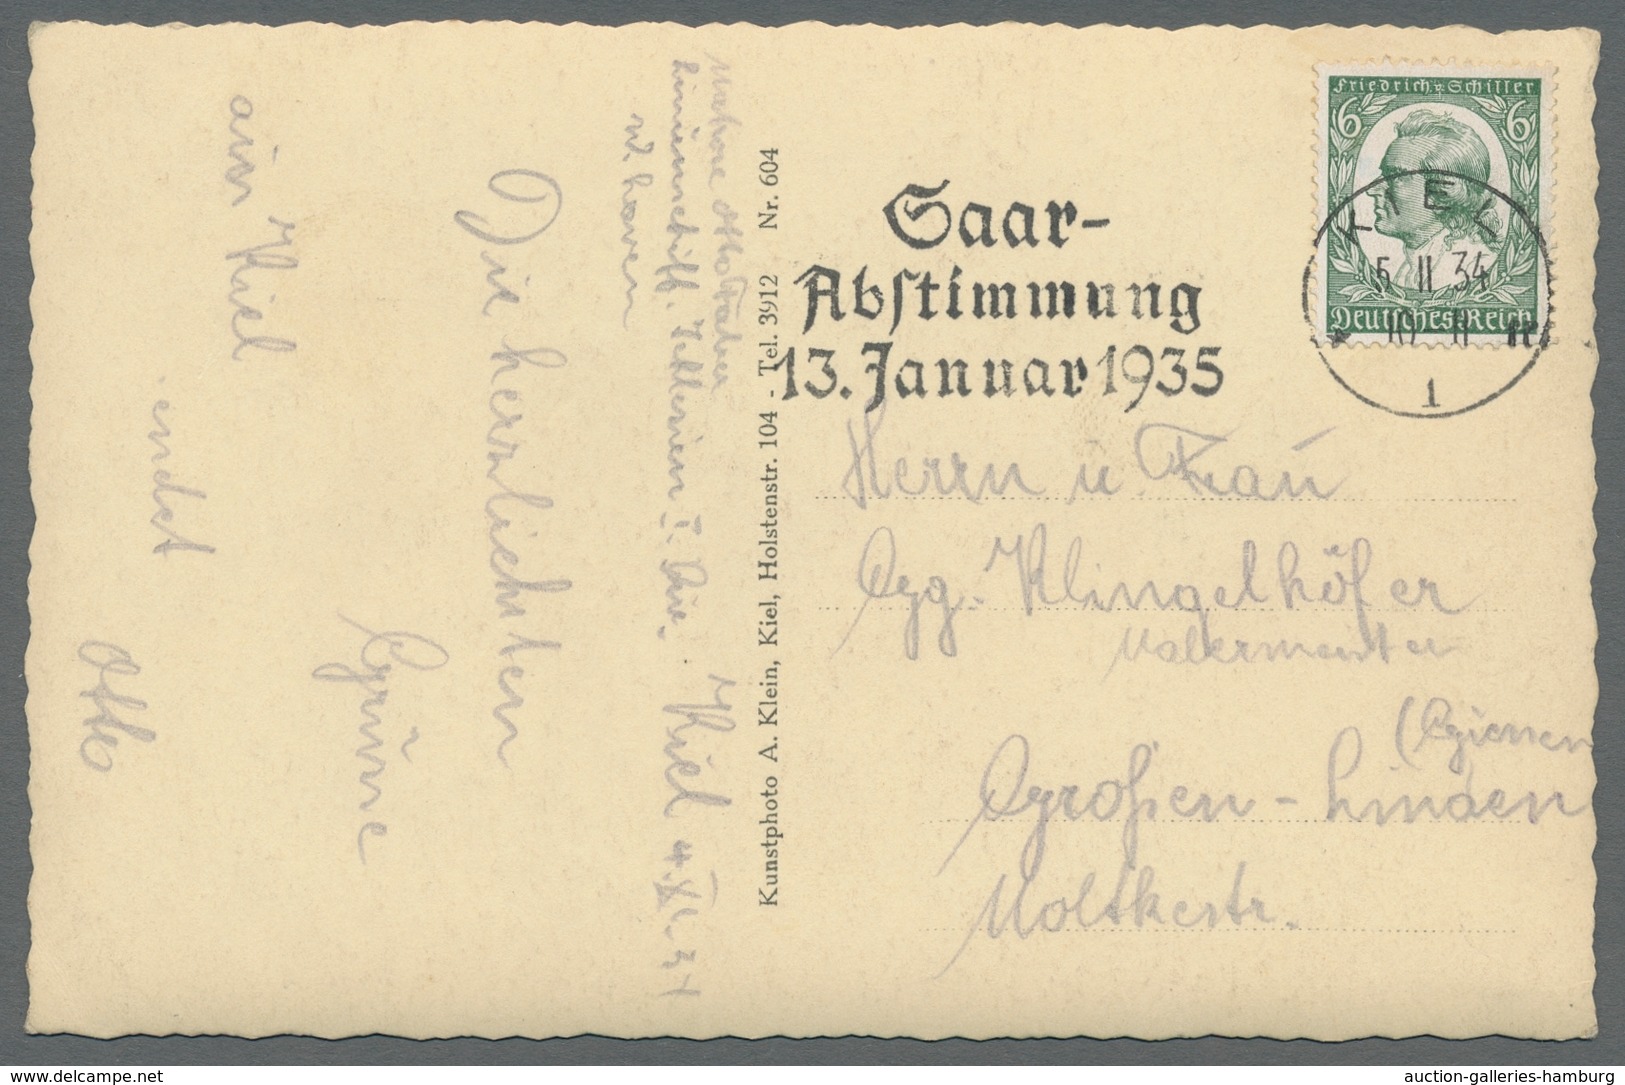 Matrose Otto Faber
Linienschiff. Schlesien I. Div.
W. haven
Kiel 4. XI. 34
Die herzlichsten
Grüße
aus Kiel
sendet
Otto
Kunstphoto A. Klein, Kiel, Holstenstr. 104 - Tel. 3912 Nr. 604
Saar-
Abstimmung
13. Januar 1935
Friedrich v. Schiller
6 6
Deutsches Reich
KIEL
5 11 34
1
Herrn u. Frau
Gg. Klingelhöfer
Malermeister
(Giessen
Großen-Linden
Moltkestr.
auction-galleries-hamburg